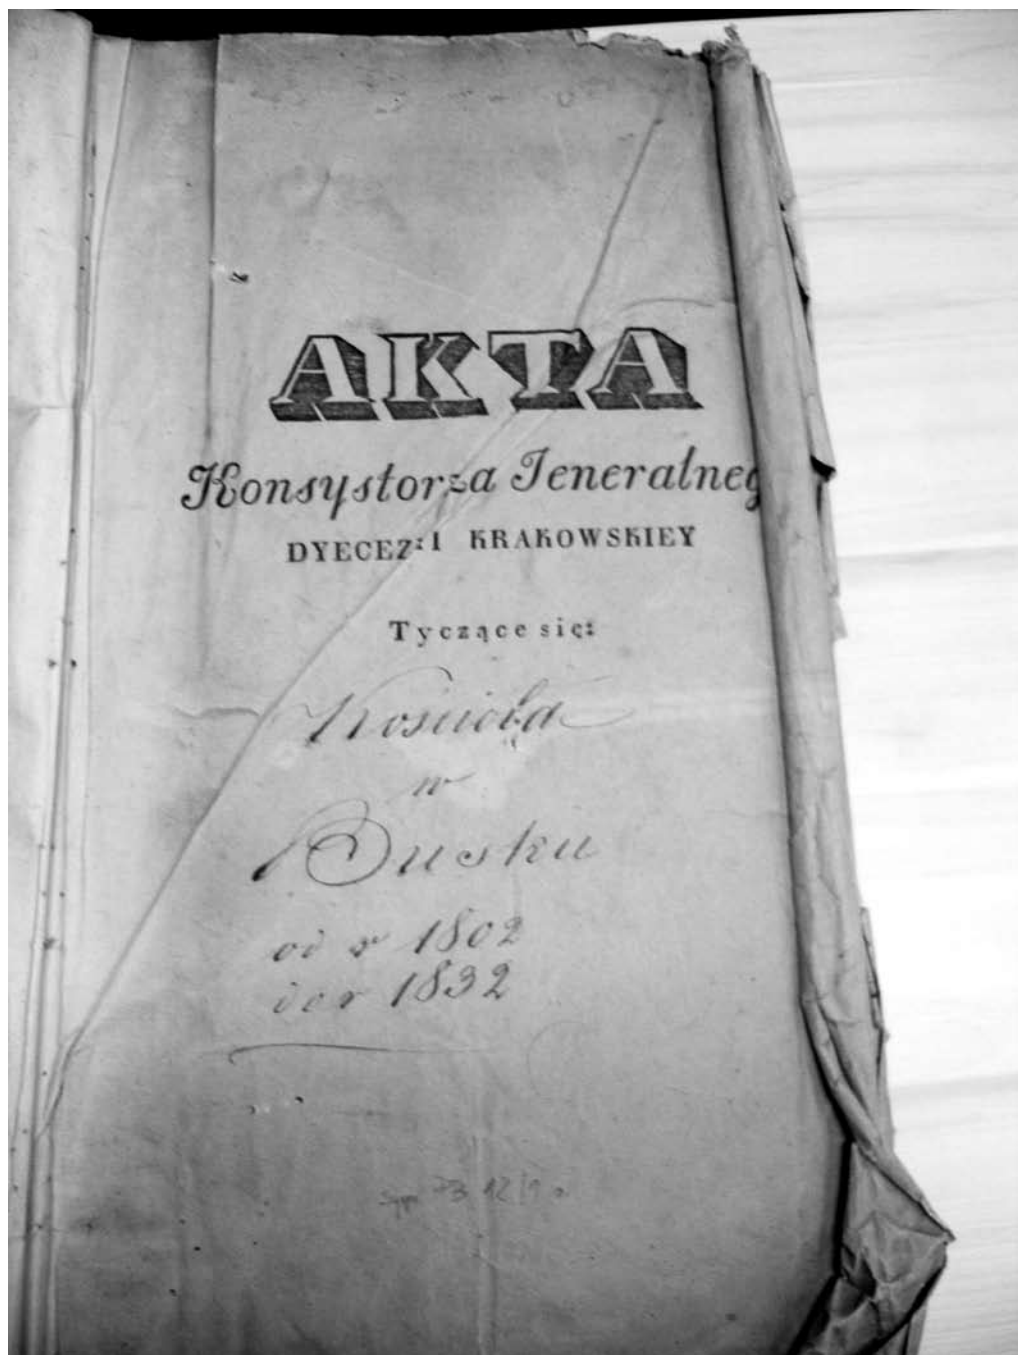 AKTA
Konsystorza Jeneralneg
DYECEZ:I KRAKOWSKIEY
Tyczące się:
Kościoła
w
Busku
od r 1802
do r 1832